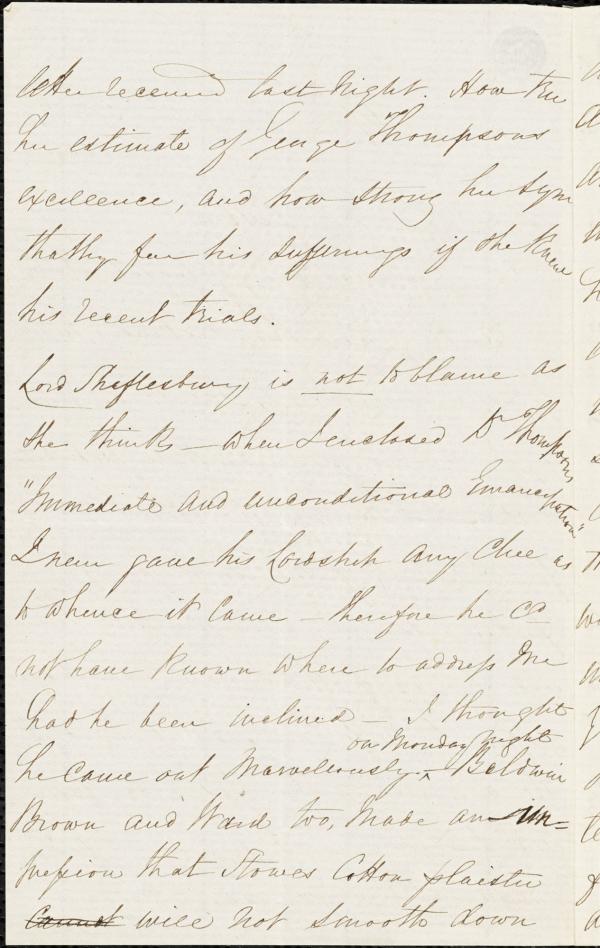 letter received last night. How true
her estimate of George Thompsons
excellence, and how strong her sym
thathy for his sufferings if she knew
his recent trials.
Lord Shaftesbury is not to blame as
she thinks – when I enclosed Dr Thompsons
"Immediate and unconditional Emancipation"
I never gave his Lordship any Clue as
to whence it came – therefore he cd
not have known where to address me
had he been inclined – I thought
on Monday night
he came out marvellously. ^ Baldwin
Brown and Ward too, made an im=
pression that Stowes Cotton plaister
cannot will not smooth down